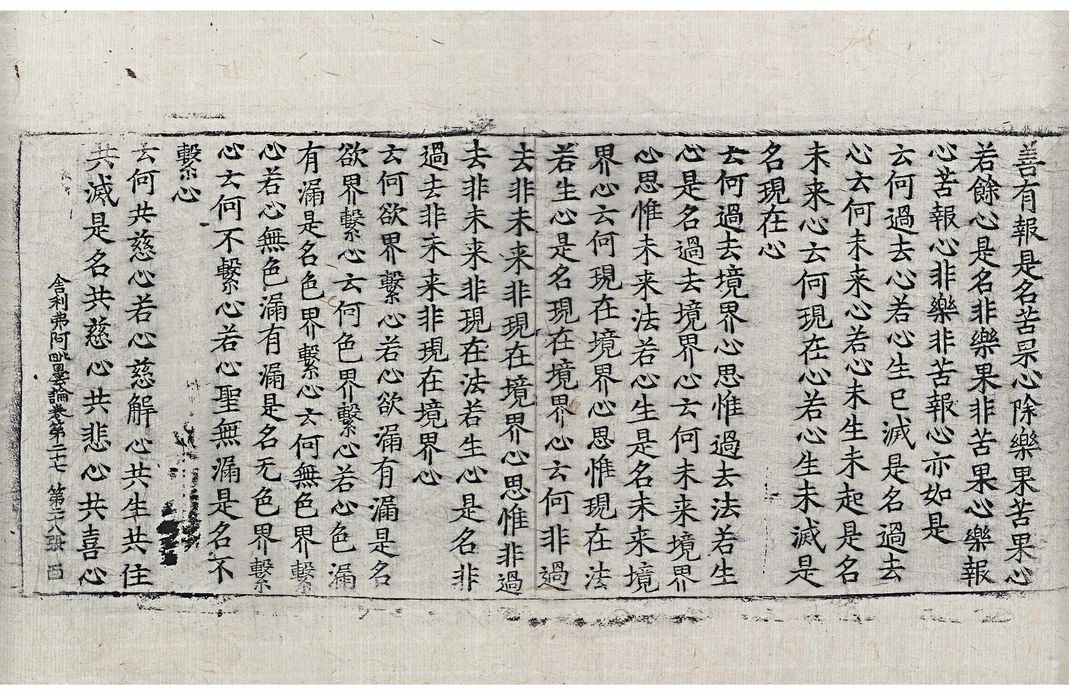 善有報是名苦果心除樂果苦果心
若餘心是名非樂果非苦果心樂報
心苦報心非樂報非苦報心亦如是
云何過去心若心生已滅是名過去
心云何未来心若心未生未起是名
未来心云何現在心若心生未滅是
名現在心
云何過去境界心思惟過去法若生
心是名過去境界心云何未来境界
心思惟未来法若心生是名未来境
界心云何現在境界心思惟現在法
若生心是名現在境界心云何非過
去非未来非現在境界心思惟非過
去非未来非現在法若生心是名非
過去非未来非現在境界心
云何欲界繫心若心欲漏有漏是名
欲界繫心云何色界繫心若心色漏
有漏是名色界繫心云何無色界繫
心若心無色漏有漏是名无色界繫
心云何不繫心若心聖無漏是名不
繫心
云何共慈心若心慈解心共生共住
共滅是名共慈心共悲心共喜心
舍利弗阿毗曇論卷第二十七 第三八張